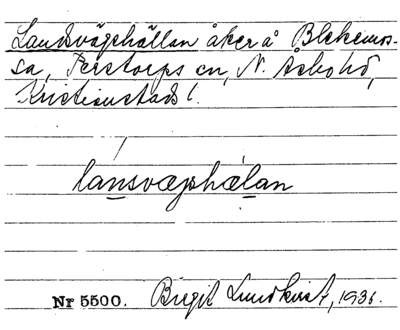 Landsvägshällan åker å Blekemos-
sa, Perstorps sn, N. Åsbo hd,
Kristianstads l.
lánsvægshælan
Nr 5500. Birgit Lundkvist, 1936.